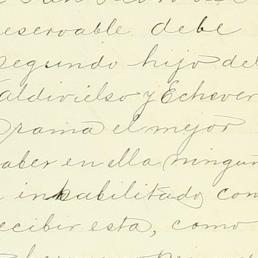 eservable debe
segundo hijo del
aldivielso y Echever
rama el mejor
aber en ella ningun
inhabilitado con
ecibir esta, como